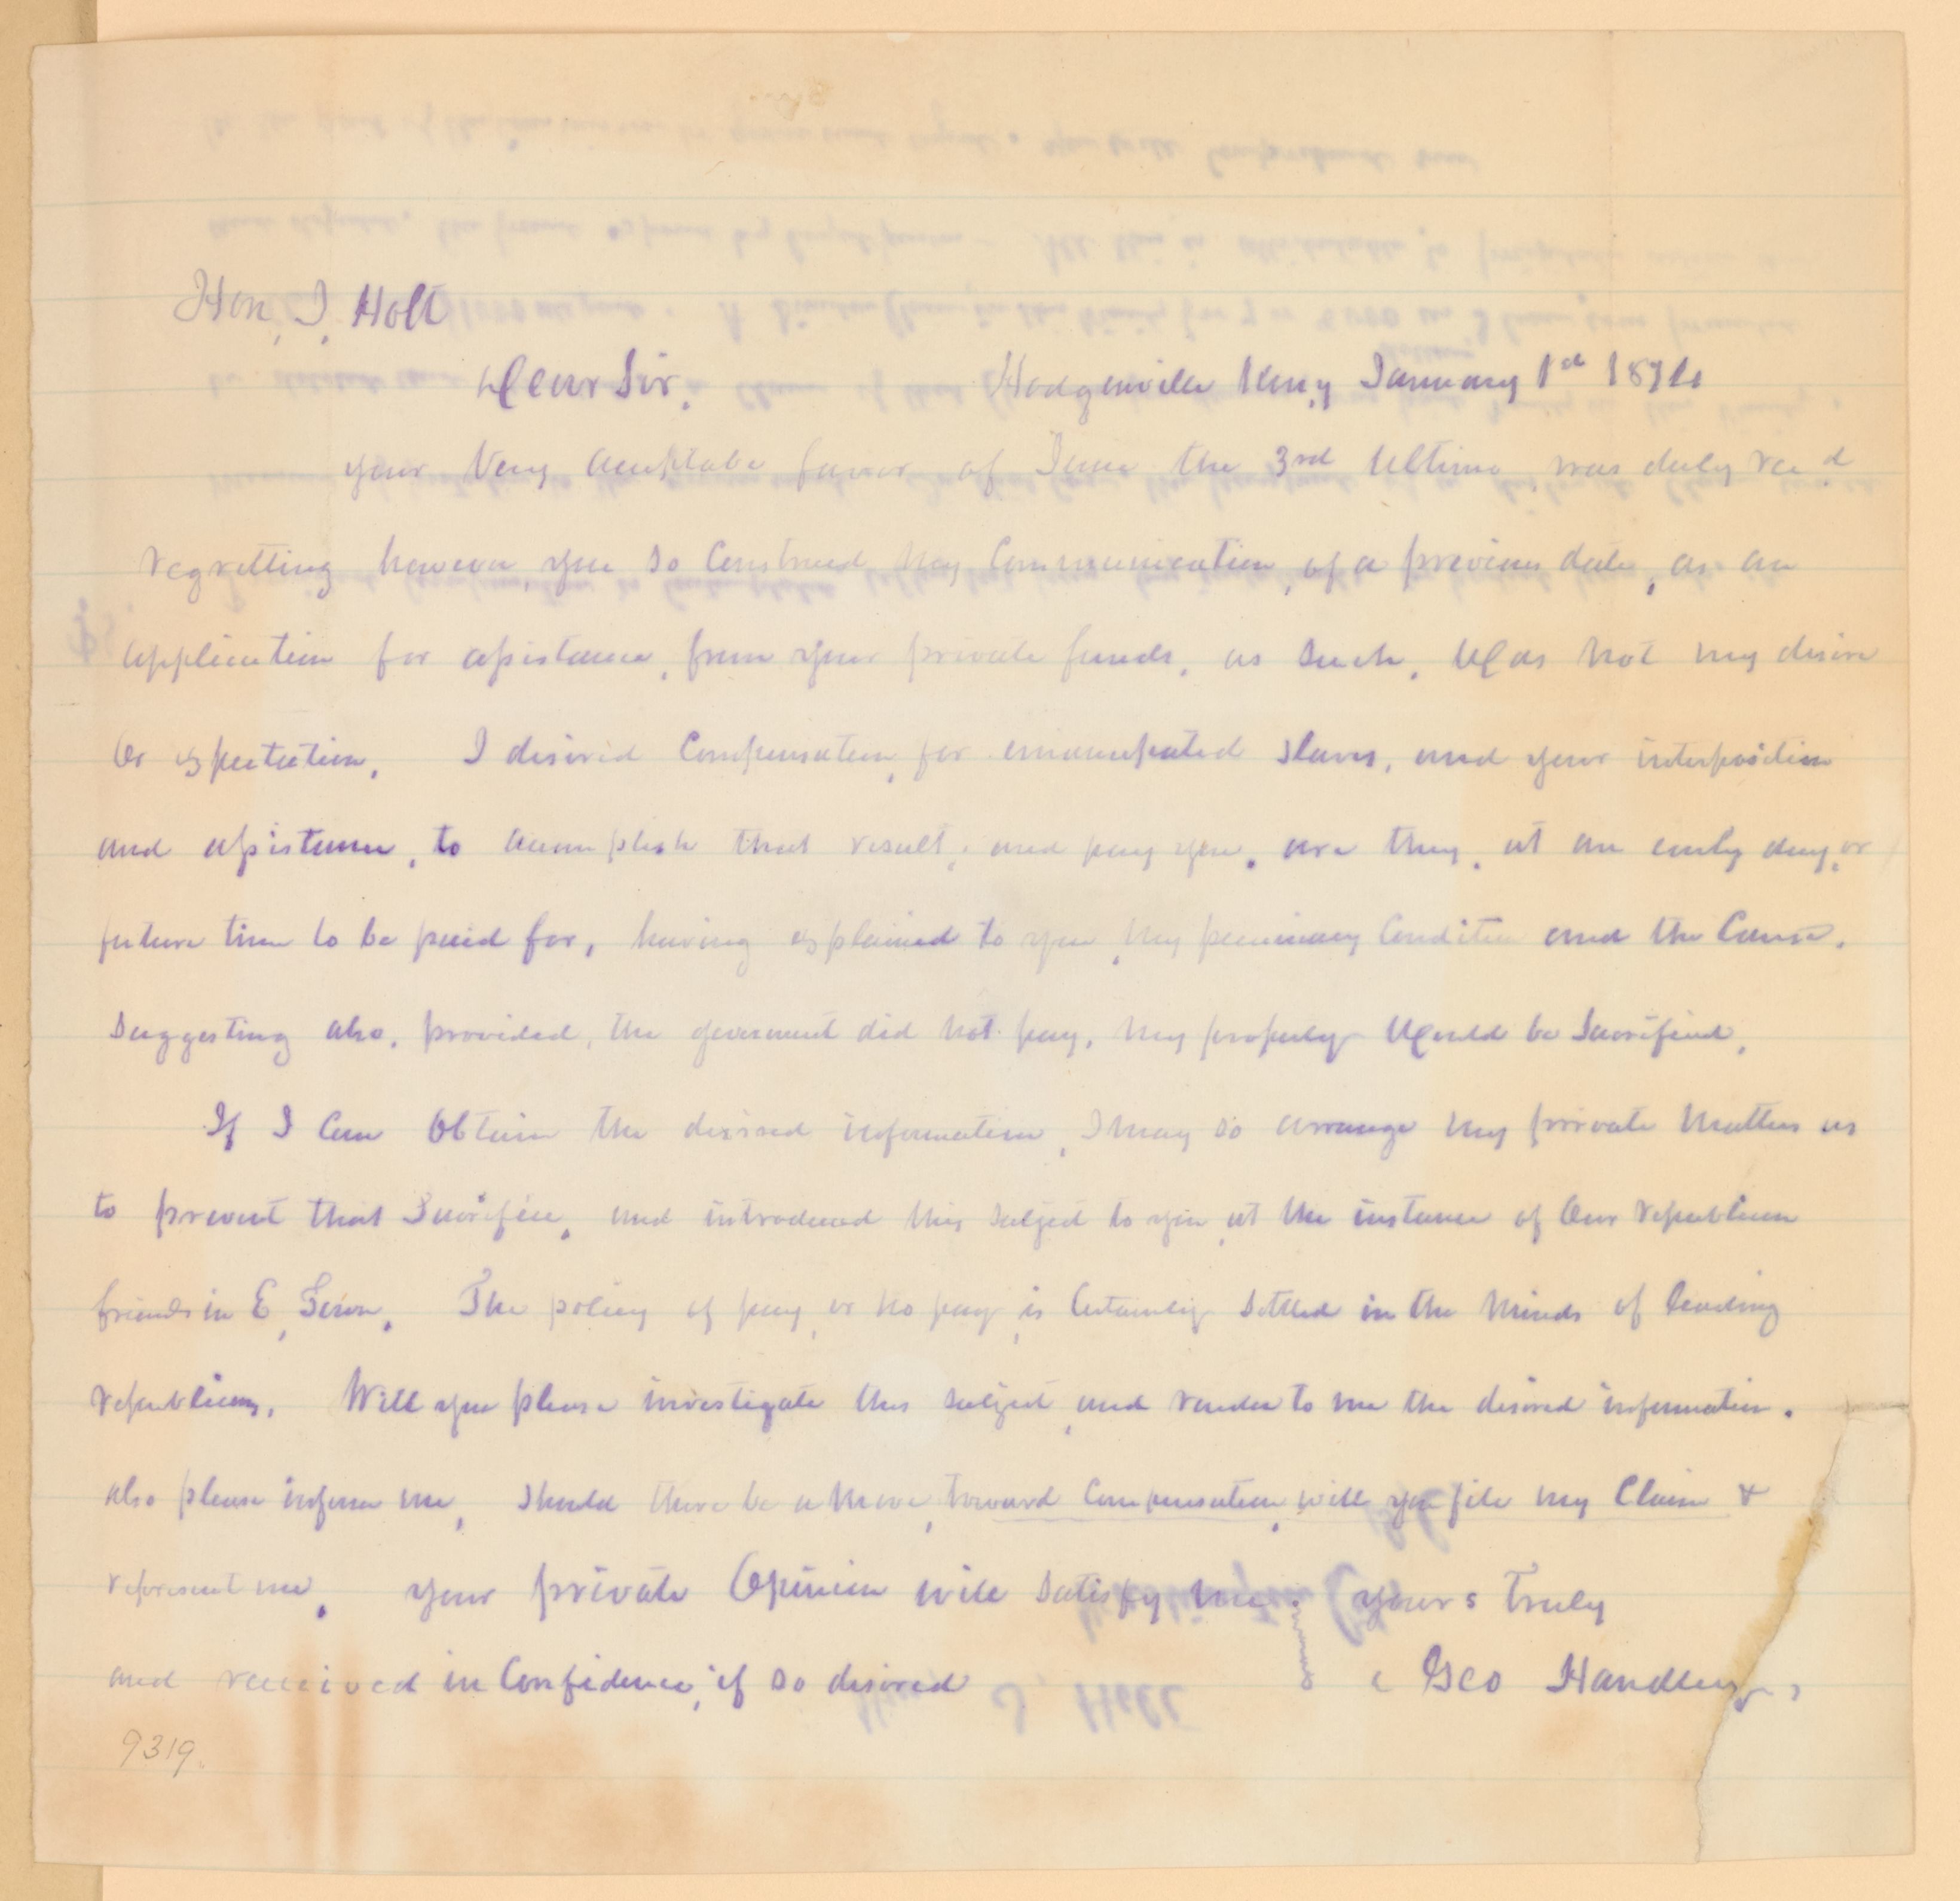 Hon, J, Holt
Dear Sir. Hodgenville Keny January 1st
your Very acceptabe favor of June the 3rd Ultimo was duly recd
regretting however, you so Construed my Communication, of a previous date, as an
application for assistance, from your private funds, as such, Was not my desire
Or expectation, I desired Compensation, for emancipated slaves, and your interposition
and assistance, to accomplish that result, and pray you, are they, at an early day, or
future time to be paid for, having explained to you, my pecuniary Condition and the Cause.
Suggesting also, provided, the goverment did not pay, my property Would be Sacrificed,
If I Can Obtain the desired information, I may so arrange my private Matters as
to prevent that Sacrifice, and introduced this subject to you, at the instance of Our republican
friends in E, Town, The policy of pay, or no pay, is Certainly Settled in the Minds of leading
republicans, Will you please investigate this subject, and render to me the desired information.
also please inform me, Should there be a Move, toward Compensation, will you file my Claim &
represent me, your private Opinion will satisfy me. yours Truly
and received in Confidence, if so desired Geo
9319.